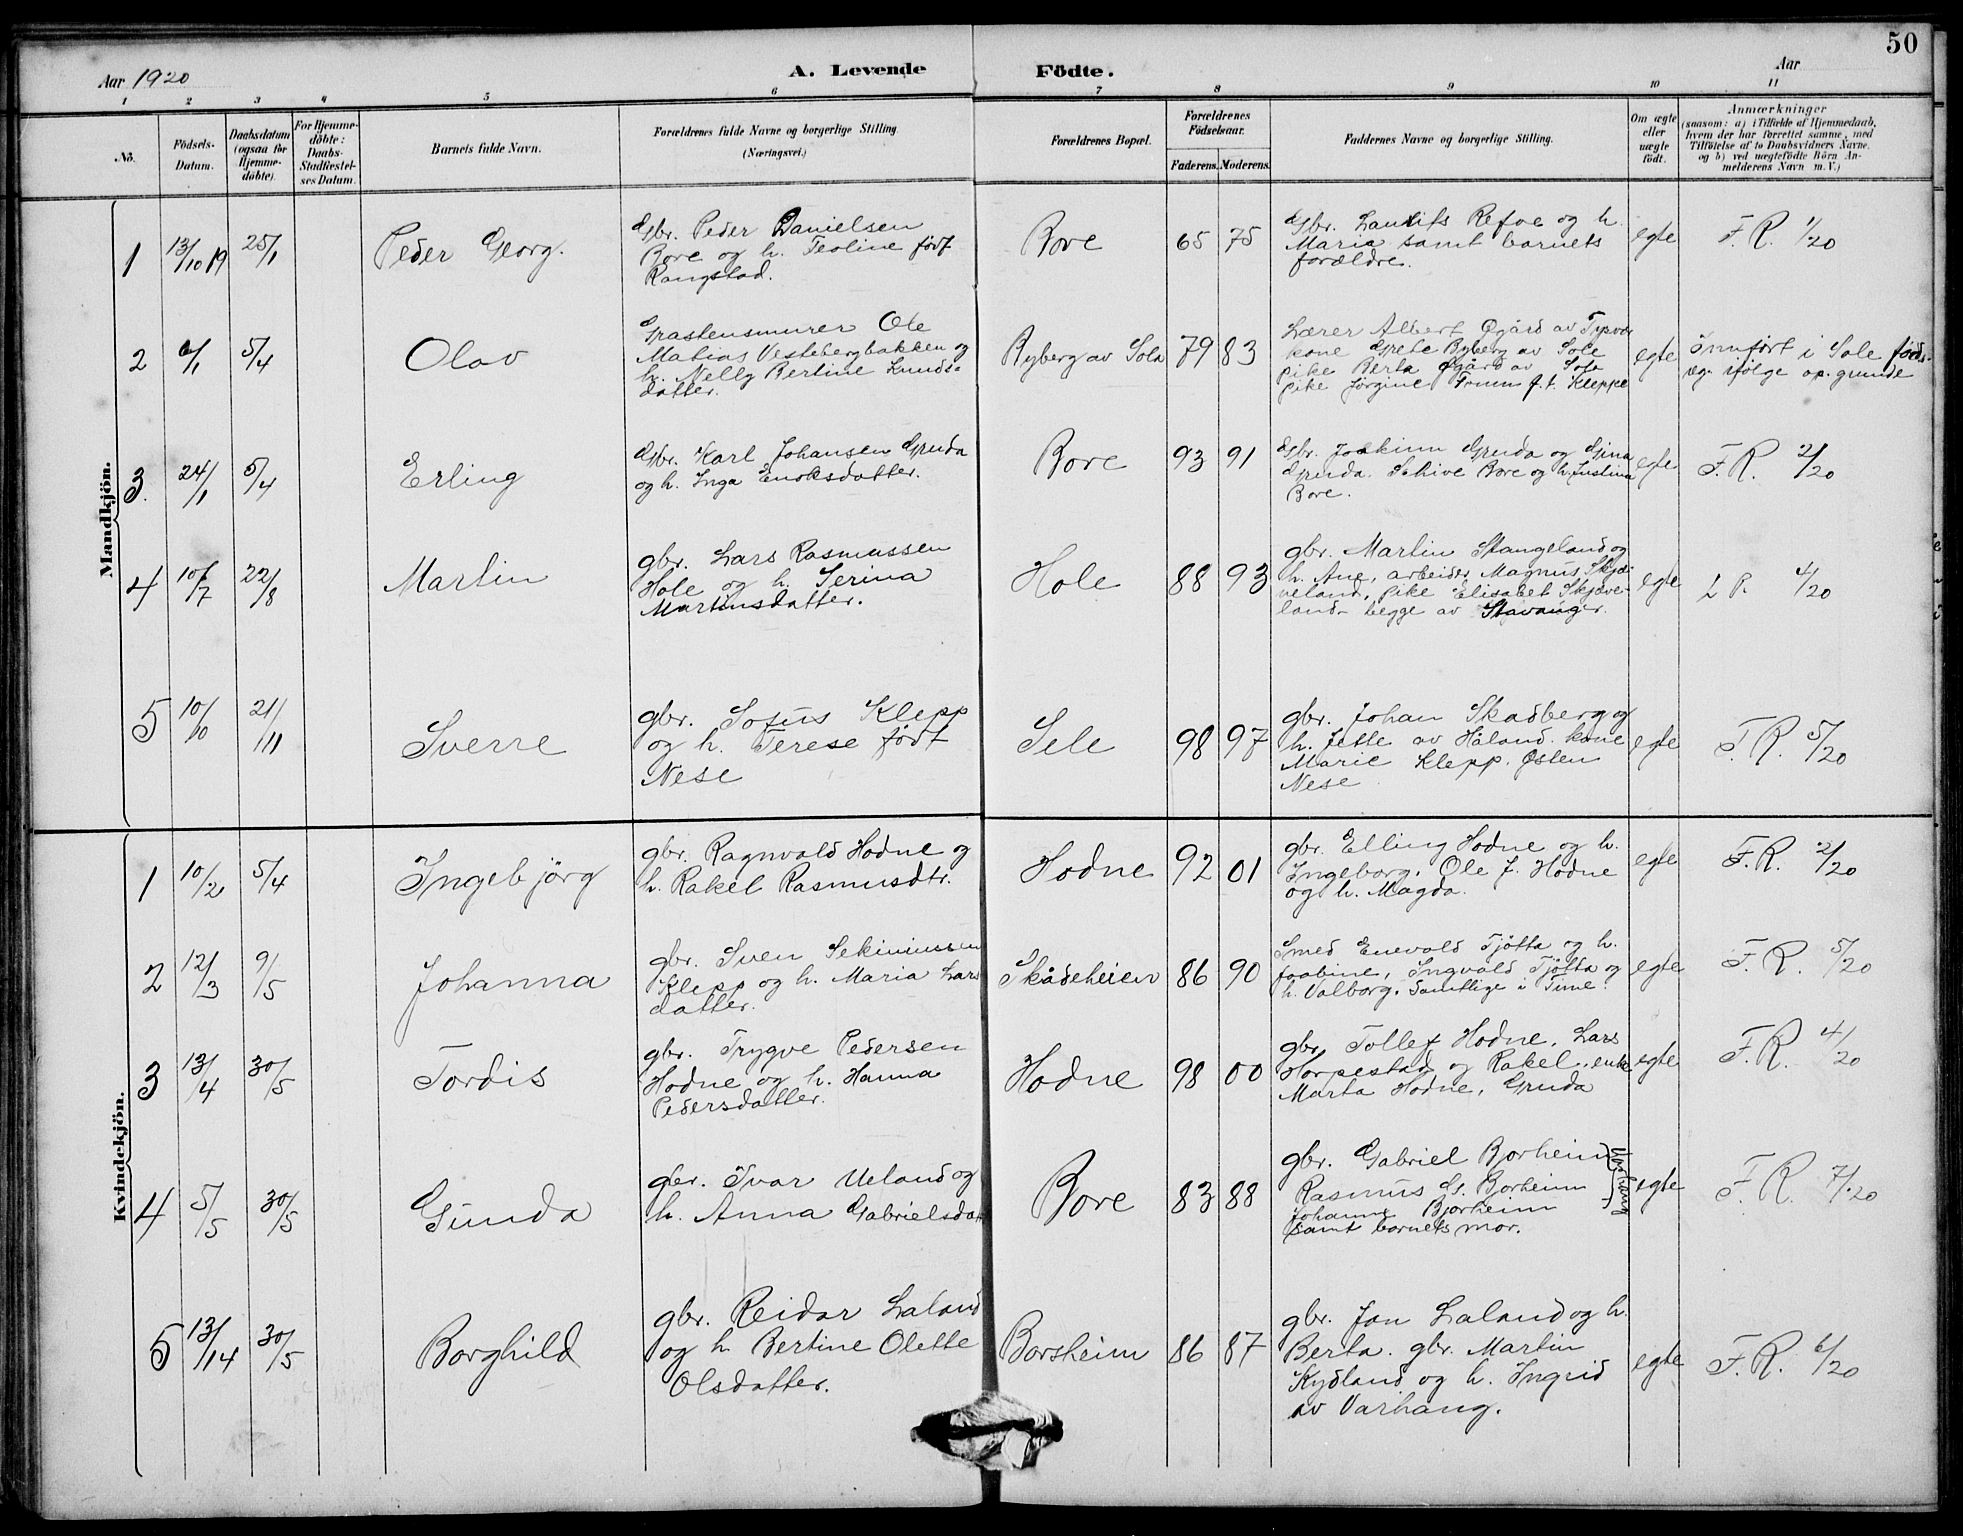 50
Aar 1920
A. Levende Födte.
Aar
1 2 3 4 5 6 7 8 9 10 11
No.
Födsels-Datum.
Daabsdatum (ogsaa for Hjemme-döbte).
For Hjemme-döbte: Daabs-Stadfæstel-ses Datum.
Barnets fulde Navn.
Forældrenes fulde Navne og borgerlige Stilling.
(Næringsvei.)
Forældrenes Bopæl.
Forældrenes Födselsaar.
Faderens. Moderens.
Faddernes Navne og borgerlige Stilling.
Om ægte eller uægte födt.
Anmærkninger
(saasom: a) i Tilfælde af Hjemmedaab,
hvem der har forrettet samme, med
Tilföielse af to Daabsvidners Navne,
og b) ved uægtefödte Börn An-
melderens Navn m. V.)
Mandkjön.
1 13/10 19 25/1 Peder Georg.
Gbr. Peder Danielsen
Bore og h. Teoline födt
Rangstad.
Bore 65 75
Gbr. Refve og h.
Maria samt barnets
forældre.
egte F.R. 1/20
2 6/1 5/4 Olav
Graastensmurer Ole
Matias Vestebergbakken og
h. Nelly Bertine Lunds-
datter.
Ryberg av Sola 79 83
Lærer Albert Øgård av Tysvær
kone Grete Byberg av Sole
pike Berta Øgård av Sola
pike Jörgine f. t. Kleppe
egte
Innfört i Sole föds.
reg. ifölge op. grunde
3. 24/1 5/4 Erling
Gbr. Karl Johansen Gruda
og h. Inga Enoksdatter.
Bore 93 91
Gbr. Joakim Gruda og Gina
Gruda. Bore og h. Justina
Bore.
egte F.R. 2/20
4 10/7 22/8 Martin
gbr. Lars Rasmussen
Hole og h. Serina
Martinsdatter.
Hole 88 93
gbr. Martin Stangeland og
h. Ane, arbeider Magnus Skjæ-
veland, pike Elisabet Skjæve-
land begge av Stavanger.
egte F.R. 4/20
5 10/10 21/11 Sverre
gbr. Sofus Klepp
og h. Terese födt
Nese
Sele 98 97
gbr. Johan Skadberg og
h. Jette av Håland. kone
Marie Klepp. Østen
Nese
egte F.R. 5/20
Kvindekjön.
1 10/2 5/4 Ingebjörg
gbr. Ragnvald Hodne og
h. Rakel Rasmusdtr.
Hodne 92 01
gbr. Elling Hodne og h.
Ingeborg. Ole J. Hodne
og h. Magda.
egte F.R. 2/20
2 12/3 9/5 Johanna
gbr. Sven Sekiniussen
Klepp og h. Maria Lars
datter.
Skådeheien 86 90
Smed Enevald Tjötta og h.
Jaabine, Ingvald Tjötta og
h. Valborg. Samtlige i Time.
egte F.R. 5/20
3 13/4 30/5 Tordis
gbr. Trygve Pedersen
Hodne og h. Hanna
Pedersdatter.
Hodne 98 00
gbr. Tollef Hodne, Lars
Horpestad og Rakel, enke
Marta Hodne, Gruda
egte F.R. 4/20
4 5/5 30/5 Gunda
gbr. Ivar Ueland og
h. Anna Gabrielsdat
Bore 83 88
gbr. Gabriel Bjorheim
Rasmus G. Bjorheim
Johanne Bjorheim
samt barnets mor.
Varhaug
egte F.R. 7/20
5 13/14 30/5 Borghild
gbr. Reidar Laland
og h. Bertine Olette
Olsdatter.
Borsheim 86 87
gbr. Jon Laland og h.
Berta. gbr. Martin
Kydland og h. Ingrid
av Varhaug.
egte F.R. 6/20